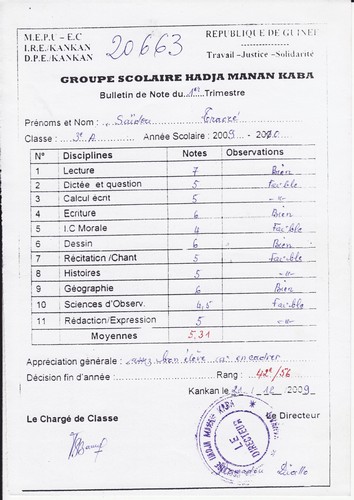 M.E.P.U – E.C
I.R.E./KANKAN
D.P.E./KANKAN
20663
REPUBLIQUE DE GUINEE
Travail –Justice –Solidarité
GROUPE SCOLAIRE HADJA MANAN KABA
Bulletin de Note du 1er Trimestre
Prénoms et Nom : Saïdou Traoré
Classe : 3e A Année Scolaire : 2009 – 2010
N° Disciplines Notes Observations
1 Lecture 7 Bien
2 Dictée et question 5 Faible
3 Calcul écrit 5 -"-
4 Ecriture 6 Bien
5 I.C Morale 4 Faible
6 Dessin 6 Bien
7 Récitation /Chant 5 Faible
8 Histoires 5 -"-
9 Géographie 6 Bien
10 Sciences d'Observ. 4,5 Faible
11 Rédaction/Expression 5 -"-
Moyennes 5,31
Appréciation générale : assez bon élève à encadrer
Décision fin d'année : Rang : 42e/56
Kankan le 21 12 2009
Le Chargé de Classe
Le Directeur
HADJA MANAN KABA
LE DIRECTEUR
Diallo